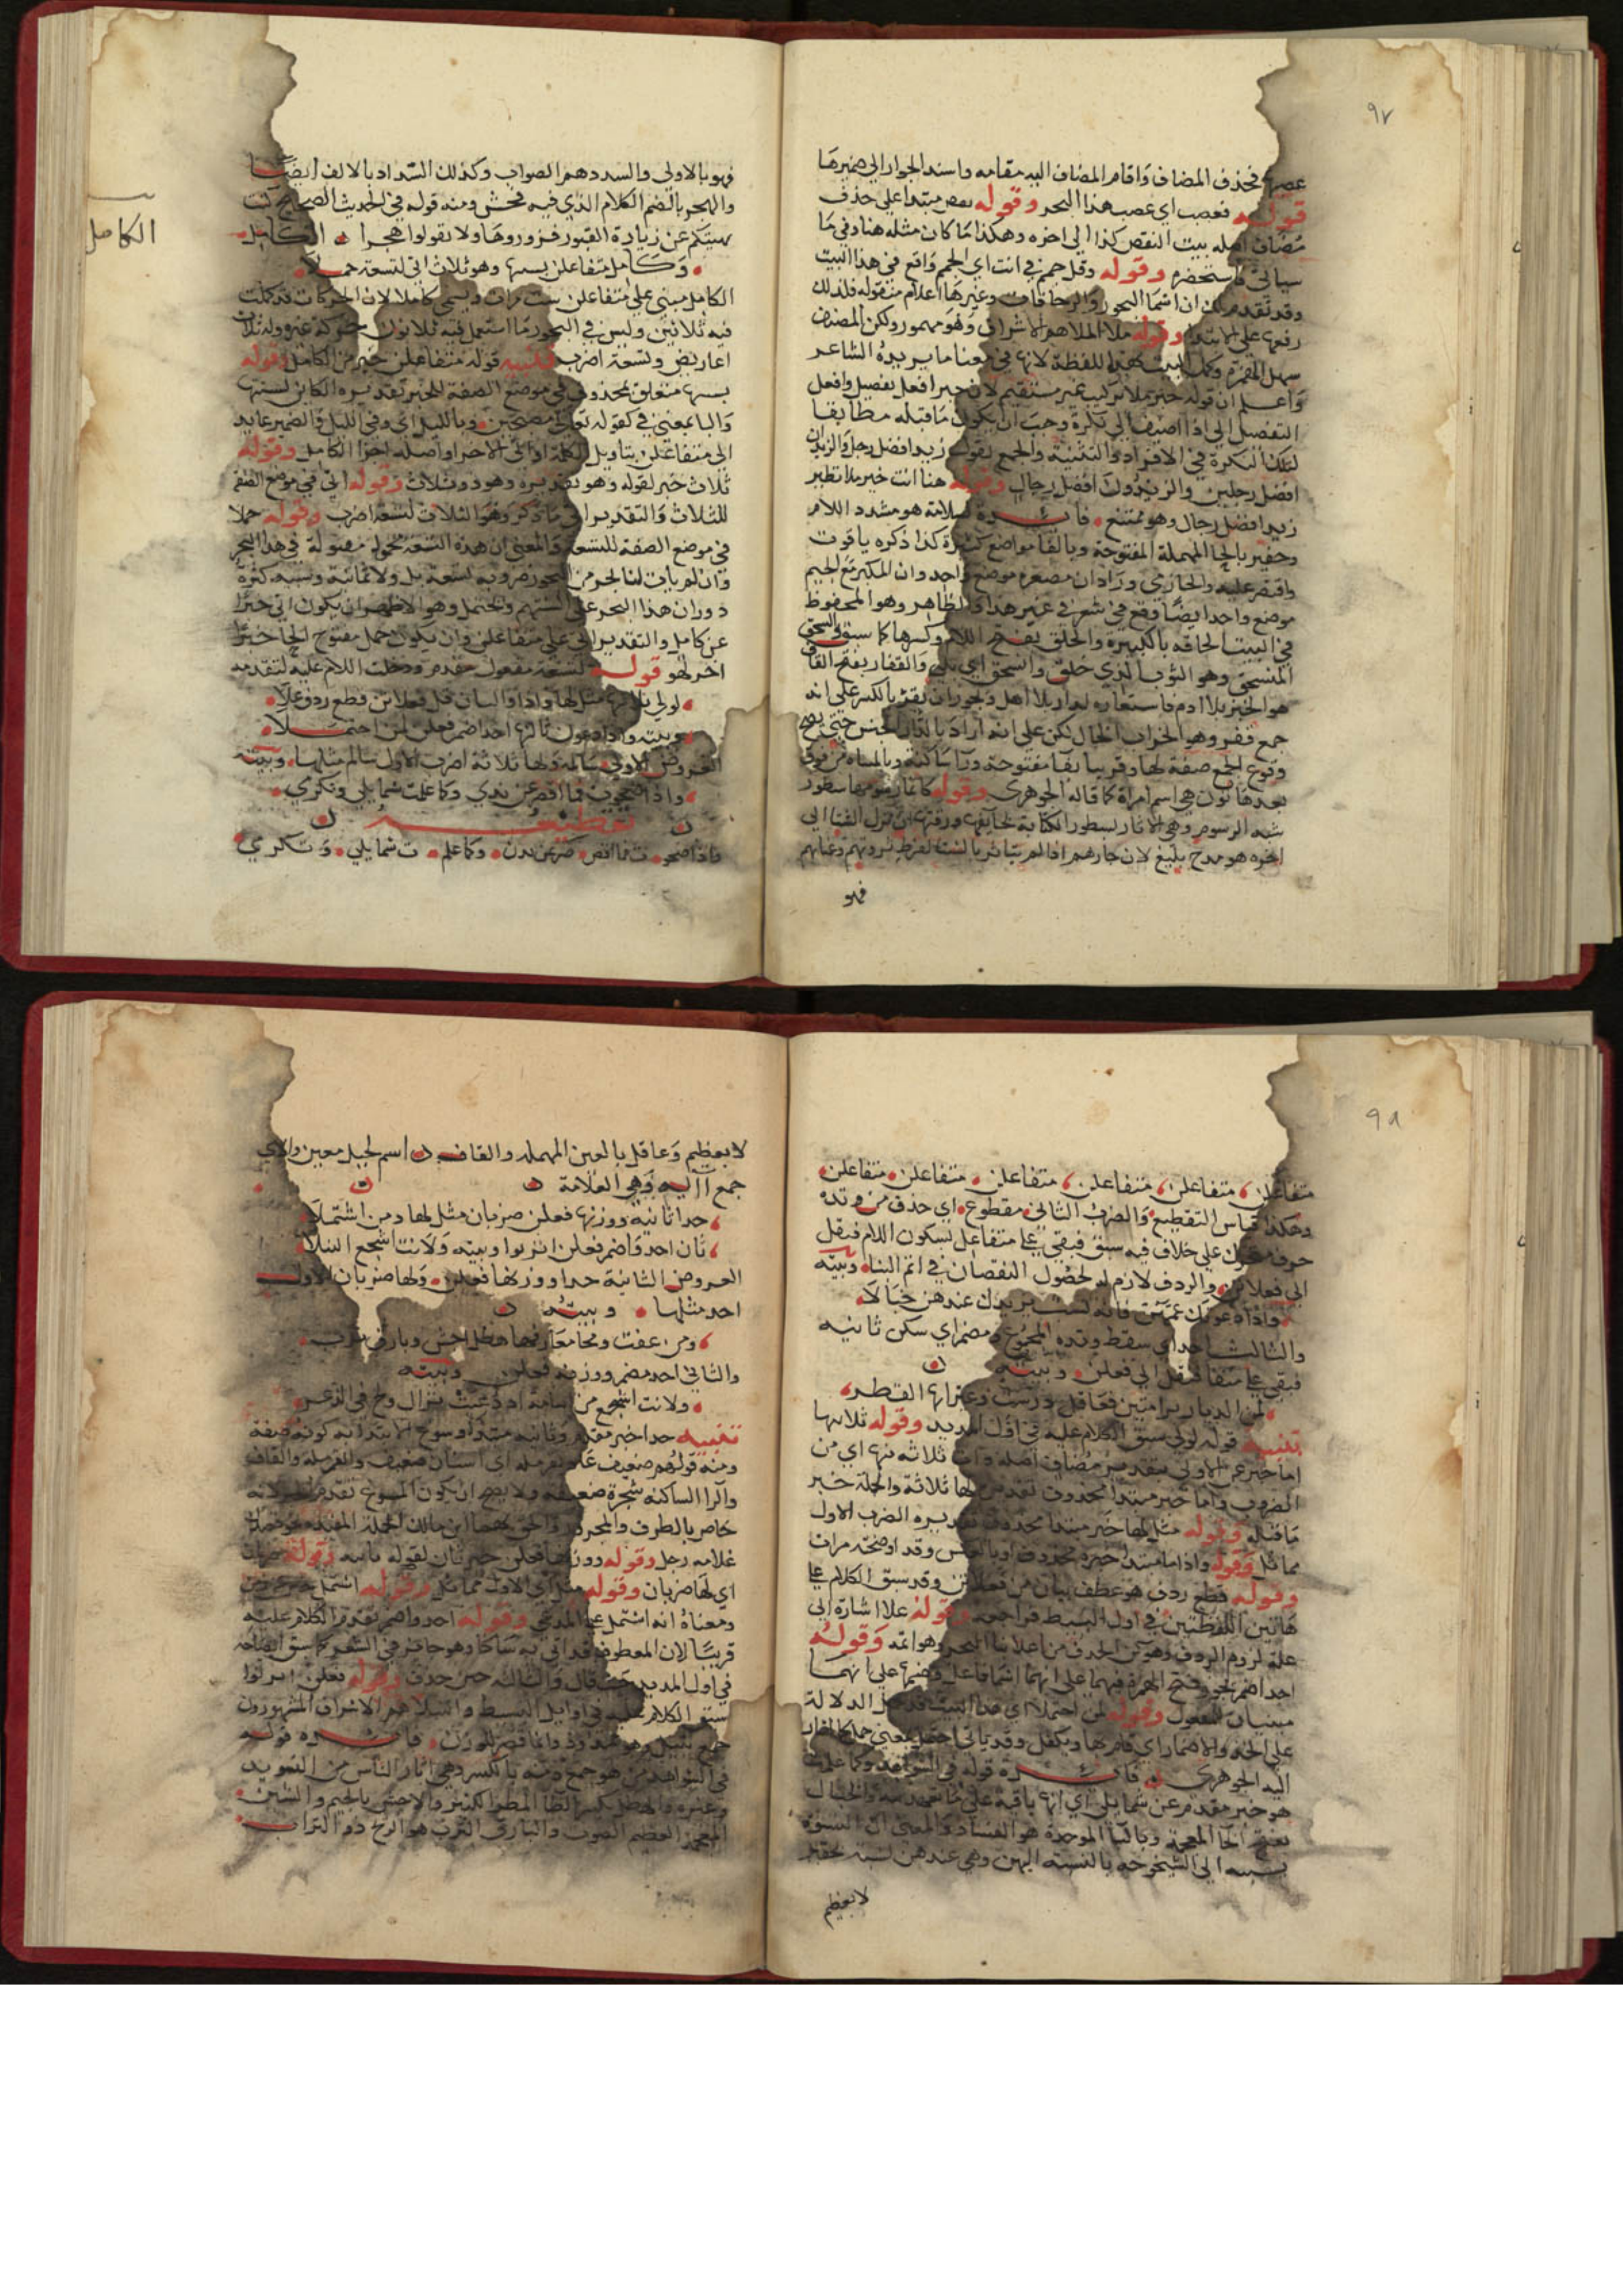 ٩٧
فحذف المضاف واقام المضاف اليه مقامه واسند الجوار الى ضميرها
قوله فعصب اي عصب هذا البحر وقوله نقص مبتدا على حذف
مضاف اصله بيت النقص كذا الى اخره وهكذا ما كان مثله هنا وفي ما
سياتي فاستحضره وقوله وقل جمم في انت اي الجمم واقع في هذا البيت
وقد تقدم لك ان اسما البحور والزحافات وغيرها اعلام منقوله فلذلك
رفعها على الابتدا وقوله ملا الملا هم الاشراف وهو مهموز ولكن المصنف
سهل الهمزة وكمل البيت بهذا اللفظة لانها في معنا ما يريده الشاعر
واعلم ان قوله خير ملا تركيب غير مستقيم لان خير افعل تفضيل وافعل
التفضيل اذا اضيف الى نكرة وجب ان يكون ما قبله مطابقا
لتلك النكرة في الافراد والتثنية والجمع تقول زيد افضل رجل والزيدان
افضل رجلين والزيدون افضل رجال وقوله هنا انت خير ملا نظير
زيد افضل رجال وهو ممتنع فايدة سلامة هو مشدد اللام
وحفير بالحا المهملة المفتوحة وبالفا مواضع كثيرة كذا ذكره ياقوت
واقتصر عليه والحازمي وزاد ان مصغره موضع واحد وان المكبر مع الجيم
موضع واحد ايضا وقع في شعر في غير هذا والظاهر وهو المحفوظ
في البيت الحاقه بالكبيرة والخلق بفتح اللام وكسرها كما سبق والسحق
المنسحق وهو الثوب الذي خلق وانسحق اي بلي والقفار بفتح القاف
هو الخبز بلا ادم فاستعاره لدار بلا اهل ويجوز ان يقرا بالكسر على انه
جمع قفر وهو الخراب الخال لكن على انه اراد بالدار الجنس حتى يصح
وقوع الجمع صفة لها وقريبا بقا مفتوحة وتا ساكنة وبالمثناه من فوق
بعدها نون هي اسم امراة كما قاله الجوهري وقوله كانما رسومها سطور
شبه الرسوم وهي الاثار بسطور الكتابة
اخره هو مدح بليغ لان جارهم اذا لم يتاثر بالشتا لفرط ثروتهم وغناهم
فهو
الكامل
فهو بالاولى والسدد هم الصواب وكذلك السداد بالالف ايضا
والهجر بالضم الكلام الذي فيه فحش ومنه قوله في الحديث الصحاح كنت
نهيتكم عن زيارة القبور فزوروها ولا تقولوا هجرا الكامل
وكامل متفاعلن بستها وهو ثلاث اتى لتسعة حملا
الكامل مبني على متفاعلن ست مرات ويسمى كاملا لان الحركات قد كملت
فيه ثلاثين وليس في البحور ما استعمل فيه ثلاثون حركة غيره وله ثلاث
اعاريض وتسعة اضرب تنبيه قوله متفاعلن خبر من الكامل وقوله
بستها متعلق بمحذوف في موضع الصفة للخبر تقديره الكاين بستها
والبا بمعنى في كقوله تعالى مصبحين وبالليل اي وفي الليل والضمير عايد
الى متفاعلن بتاويل الكلمة او الى الاجزا واصله اجزا الكامل وقوله
ثلاث خبر لقوله وهو بتقديره وهو ذو ثلاث وقوله اتى في موضع الصفة
للثلاث والتقدير اتى ما ذكر وهو الثلاث لتسعة اضرب وقوله حملا
في موضع الصفة للتسعة والمعنى ان هذه التسعة محمولة مقولة في هذا البحر
وان لم يات لنا بحر من البحور ضروبه تسعة بل ولا ثمانية وسببه كثرة
دوران هذا البحر على السنتهم ويحتمل وهو الاظهر ان يكون اتى خبرا
عن كامل والتقدير اتى على متفاعلن وان يكون حمل مفتوح الحا خبرا
اخر لهو قوله لتسعة مفعول مقدم ودخلت اللام عليه لتقدمه
لولي ثلاثها مثل لها واذا والثان قل فعلاتن قطع ردف علا
وبيته واذا دعون ثالثها احذ اضمر فعلن لمن احتملا
العروض الاولى سالمة ولها ثلاثة اضرب الاول سالم مثلها وبيته
واذا صحوت فما اقصر عن ندى وكما علمت شمايلي وتكرمي
تقطيعه
واذا صحو ت فما اقص صر عن ندن وكما علم ت شمايلي وتكرمي
٩٨
متفاعلن متفاعلن متفاعلن متفاعلن متفاعلن متفاعلن
وهكذا قياس التقطيع والضرب الثاني مقطوع اي حذف من وتده
حرف متحرك على خلاف فيه سبق فبقي على متفاعل بسكون اللام فنقل
الى فعلاتن والردف لازم له لحصول النقصان في اتم البنا وبيته
واذا دعونك عمهن فانه نسب يزيدك عندهن خبالا
والثالث احذ اي سقط وتده المجموع ومضمر اي سكن ثانيه
فبقي على متفا فنقل الى فعلن وبيته
لمن الديار برامتين فعاقل درست وغير ايها القطر
تنبيه قوله لولي سبق الكلام عليه في اول المديد وقوله ثلاثها
اما خبر عن الاولى بتقدير مضاف اصله ذات ثلاثة منها اي من
الضروب واما خبر مبتدا محذوف تقديره لها ثلاثة والجملة خبر
ما قبله وقوله مثل لها خبر مبتدا محذوف تقديره الضرب الاول
مماثل وقوله واذا اما مبتدا خبره محذوف او بالعكس وقد اوضحته مرات
وقوله قطع ردف هو عطف بيان من فعلاتن وقد سبق الكلام على
هاتين اللفظتين في اول البسيط فراجعه وقوله علا اشارة الى
علة لزوم الردف وهو كون الحذف من اعلا بنا البحر وهو اتمه وقوله
احذ اضمر يجوز فتح الهمزة فيهما على انهما اسما فاعل وضمها على انهما
مبنيان للمفعول وقوله لمن احتملا اي هذا البيت قد نقل الدلالة
على الحذ والاضمار اي قام بها وتكفل وقد ياتي احتمل بمعنى حمل كما اشار
اليه الجوهري فايدة قوله في الشواهد وكما علمت
هو خبر مقدم عن شمايلي اي انها باقية على ما تعهدينه والخبال
بفتح الخا المعجمة وبالبا الموحدة هو الفساد والمعنى ان النسوة
ينسبنه الى الشيخوخة بالنسبة اليهن وهي عندهن نسبة تحقير
لا تعظيم
لا تعظيم وعاقل بالعين المهملة والقاف اسم لجبل معين والاي
جمع اية وهي العلامة
حذا ثانيه ووزنها فعلن ضربان مثل لها ومن اشتملا
ثان احذ واضمر فعلن انزلوا وبيته ولانت اشجع النبلا
العروض الثانية حذا ووزنها فعلن ولها ضربان الاول
احذ مثلها وبيته
ومن عفت ومحا معارفها هطل اجش وبارق ترب
والثاني احذ مضمر ووزنه فعلن وبيته
ولانت اشجع من اسامة اذ دعيت نزال ولج في الذعر
تنبيه حذا خبر مقدم وثانيه مبتدا وسوغ الابتدا به كونه صفة
ومنه قولهم ضعيف عاذ بقرملة اي انسان ضعيف والقرملة والقاف
والرا الساكنه شجرة ضعيفة ولا يصح ان يكون المسوغ تقدم الخبر لانه
خاص بالظرف والمجرور والحق بهما ابن مالك الجملة
غلامه رجل وقوله ووزنها فعلن خبر ثان لقوله ثانيه وقوله ضربان
اي لها ضربان وقوله مثل اي الاول مماثل وقوله اشتمل
ومعناه انه اشتمل على المدعي وقوله احذ واضمر تقدم الكلام عليه
قريبا لان المعطوف قد اتى به ساكنا وهو جايز في الشعر كما سبق ايضاحه
في اول المديد حيث قال والثالث حين حذف وقوله فعلن انزلوا
سبق الكلام عليه في اوايل البسيط والنبلا هم الاشراف المشهورون
جمع نبيل وهو ممدود وانما قصر للوزن فايدة قوله
في الشواهد من هو جمع دمنه بالكسر وهي اثار الناس من التسويد
وغيره والهطل بكسر الطا المطر الكثير والاجش بالجيم والشين
المعجمة العظيم الصوت والبارق الترب هو الريح ذو التراب